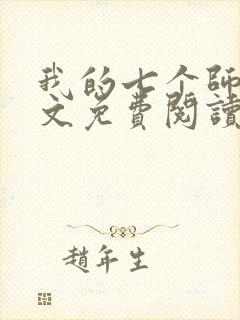 我的七个师
文免费閱讀
趙年生